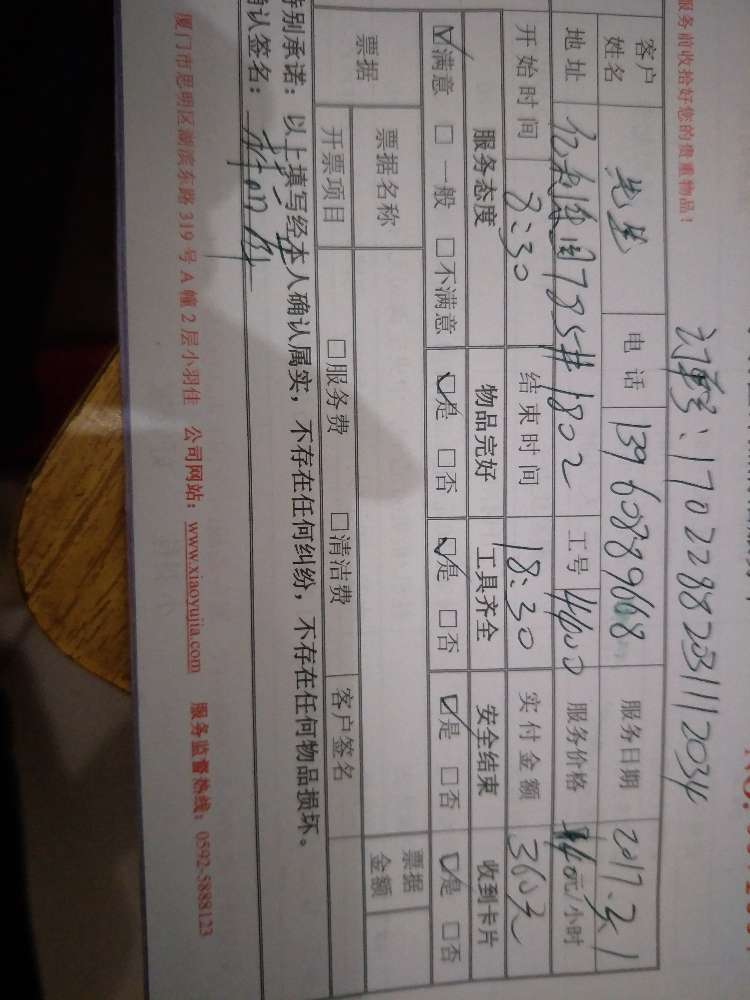 服务前收拾好您的贵重物品！
170228820311112034
客户姓名 先生 电话 13960889668 服务日期 2017.2.1
地址 785# 1802 工号 4400 服务价格 元/小时
开始时间 8:30 结束时间 18:30 实付金额 360元
服务态度 物品完好 工具齐全 安全结束 收到卡片
☑满意 □一般 □不满意 ☑是 □否 ☑是 □否 ☑是 □否 ☑是 □否
票据 票据名称 票据金额
开票项目 □服务费 □清洁费 客户签名
特别承诺：以上填写经本人确认属实，不存在任何纠纷，不存在任何物品损坏。
确认签名：
厦门市思明区湖滨东路 319 号 A 幢 2 层小羽佳 公司网站：www.xiaoyujia.com 服务监督热线：0592-5888123